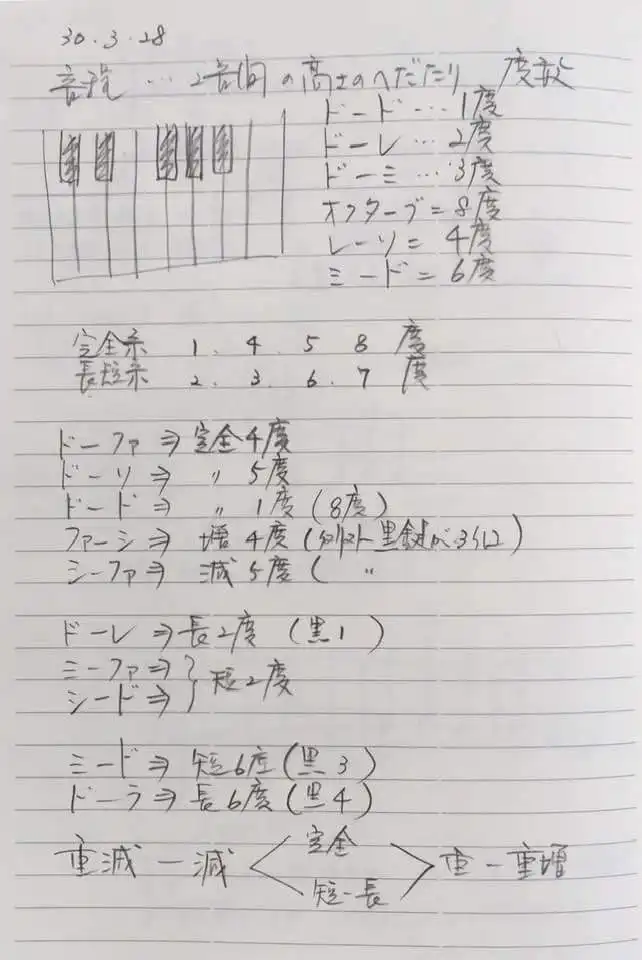 30.3.28
音程 … 2音間の高さのへだたり 度数
ド－ド … 1度
ド－レ … 2度
ド－ミ … 3度
オクターブ = 8度
レ－ソ = 4度
ミ－ド = 6度
完全系 1. 4. 5 8 度
長短系 2. 3. 6. 7 度
ド－ファ ⇒ 完全4度
ド－ソ ⇒ 〃 5度
ド－ド ⇒ 〃 1度 (8度)
ファ－シ ⇒ 増4度 (黒鍵が3つ)
シ－ファ ⇒ 減5度 ( 〃
ド－レ ⇒ 長2度 (黒1)
ミ－ファ ⇒ } 短2度
シ－ド ⇒
ミ－ド ⇒ 短6度 (黒3)
ド－ラ ⇒ 長6度 (黒4)
重減 － 減 < 完全 短－長 > － 重増